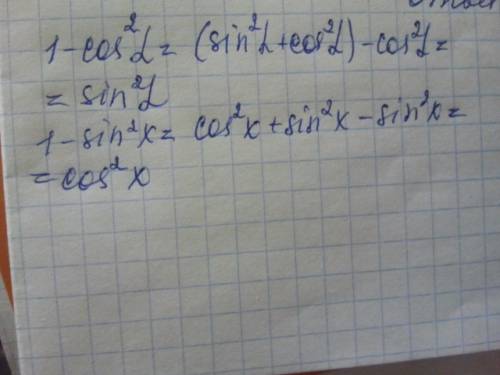 1-cos²α = (sin²α+cos²α)-cos²α =
= sin²α
1-sin²x = cos²x+sin²x-sin²x =
= cos²x